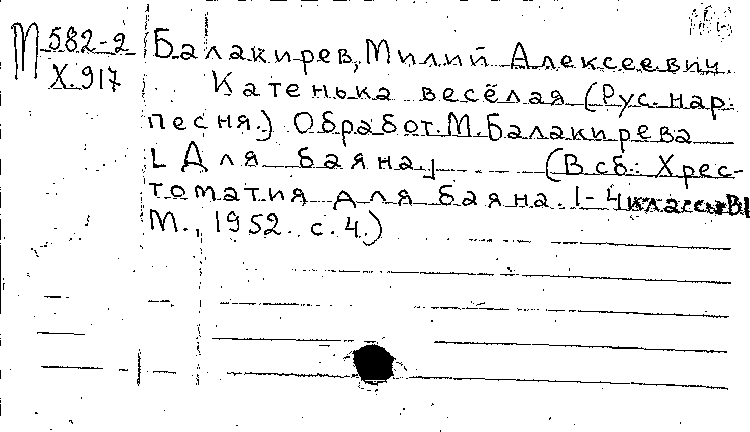 М 582-2
Х.917
Балакирев, Милий Алексеевич.
Катенька весёлая (Рус. нар.
песня.) Обработ. М. Балакирева
[Для баяна] (В сб.: Хрес-
томатия для баяна. 1-4 классы
М., 1952. с. 4.)